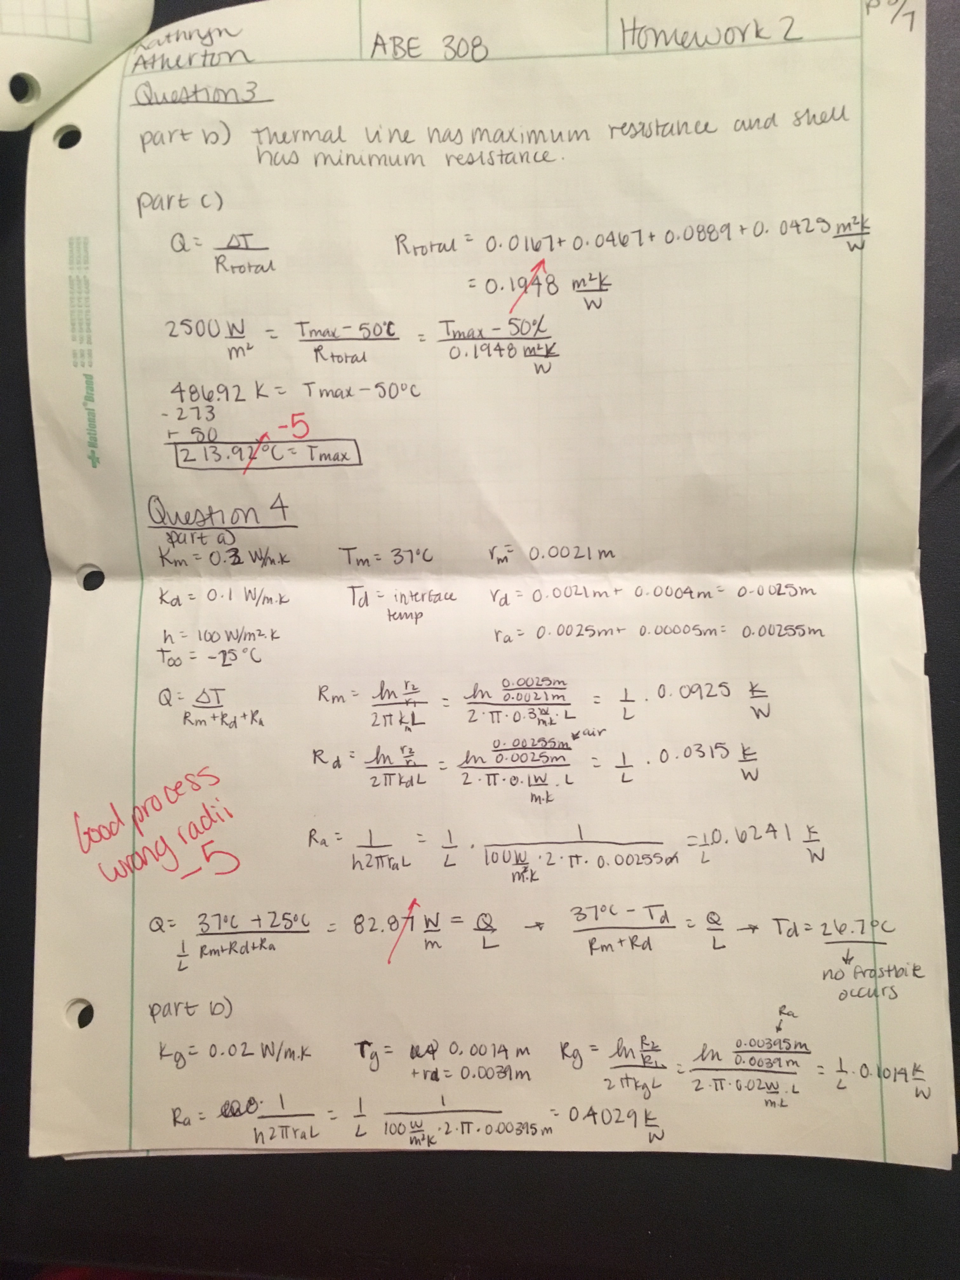 Kathryn
Atherton
ABE 308
Homework 2
Question 3
part b) Thermal line has maximum resistance and shell
has minimum resistance.
part c)
Q = ΔT / Rtotal
Rtotal = 0.0167 + 0.0467 + 0.0889 + 0.0425 m²K/W
= 0.1948 m²K/W
2500 W/m² = (Tmax - 50°C) / Rtotal = (Tmax - 50°C) / (0.1948 m²K/W)
486.92 K = Tmax - 50°C
- 273
+ 50
-5
213.92°C = Tmax
Question 4
part a)
Km = 0.3 W/m.K Tm = 37°C rm = 0.0021m
Kd = 0.1 W/m.K Td = interface temp rd = 0.0021m + 0.0004m = 0.0025m
h = 100 W/m².K ra = 0.0025m + 0.00005m = 0.00255m
T∞ = -25°C
Q = ΔT / (Rm+Rd+Ra)
Rm = ln(r2/r1) / (2πkmL) = ln(0.0025m/0.0021m) / (2·π·0.3 W/m.k·L) = 1/L · 0.0925 K/W
Rd = ln(r2/r1) / (2πkdL) = ln(0.00255m/0.0025m) / (2·π·0.1 W/m.k·L) = 1/L · 0.0315 K/W
air
Good process
wrong radii
-5
Ra = 1 / (h2πraL) = 1/L · 1 / (100 W/m²K · 2·π·0.00255m) = 1/L 0.6241 K/W
Q = (37°C + 25°C) / (1/L Rm+Rd+Ra) = 82.87 W/m = Q/L → (37°C - Td) / (Rm+Rd) = Q/L → Td = 26.7°C
no frostbite
occurs
part b)
Kg = 0.02 W/m.K rg = 0.0014 m + rd = 0.0039m Rg = ln(R2/R1) / (2πkgL) = ln(0.00395m/0.0039m) / (2·π·0.02 W/m.k·L) = 1/L · 0.1014 K/W
Ra
Ra = 1 / (h2πraL) = 1/L 1 / (100 W/m²K · 2·π·0.00395m) = 0.4029 K/W
National Brand